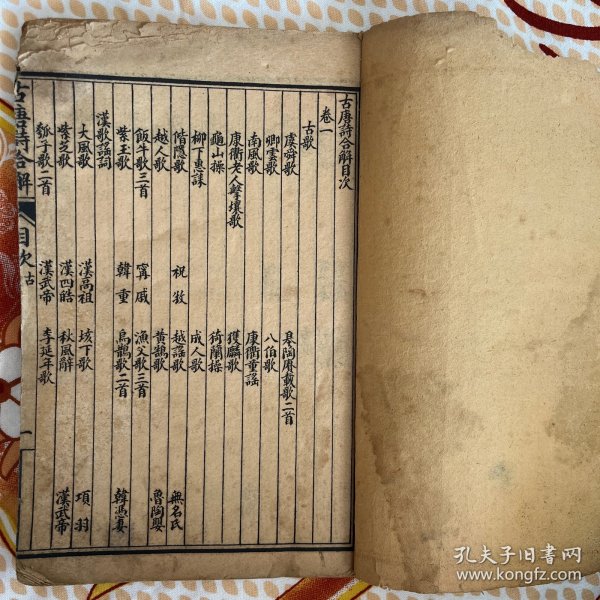 古唐詩合解目次
卷一
古歌
虞舜歌 皋陶賡載歌二首
卿雲歌 八伯歌
南風歌 康衢童謠
康衢老人擊壤歌 獲麟歌
龜山操 猗蘭操
柳下惠誄 成人歌
偕隱歌 祝牧 越謠歌 無名氏
越人歌 黃鵠歌 魯陶嬰
飯牛歌三首 甯戚 漁父歌三首
紫玉歌 韓重 烏鵲歌二首 韓憑妻
漢歌謠詞
大風歌 漢高祖 垓下歌 項羽
紫芝歌 漢四皓 秋風辭 漢武帝
瓠子歌二首 漢武帝 李延年歌
古唐詩合解 目次 古 一
孔夫子旧书网
www.kongfz.com